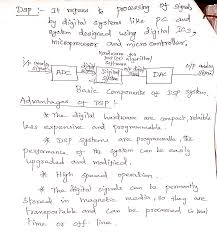 DSP :- It refers to processing of signals
by digital systems like PC and
system designed using digital ICs,
microprocessor and micro controller.
Hardware for
algorithm/
software
I/p analog
signal
ADC
Digital
system
DAC
O/p analog
signal
Basic Components of DSP system.
Advantages of DSP :-
* The digital hardware are compact, reliable
less expensive and programmable.
* DSP systems are programmable, the
performance of the system can be easily
upgraded and modified.
* High speed operation.
* The digital signals can be permently
stored in magnetic media, so they are
transportable and can be processed in real
time or off line.